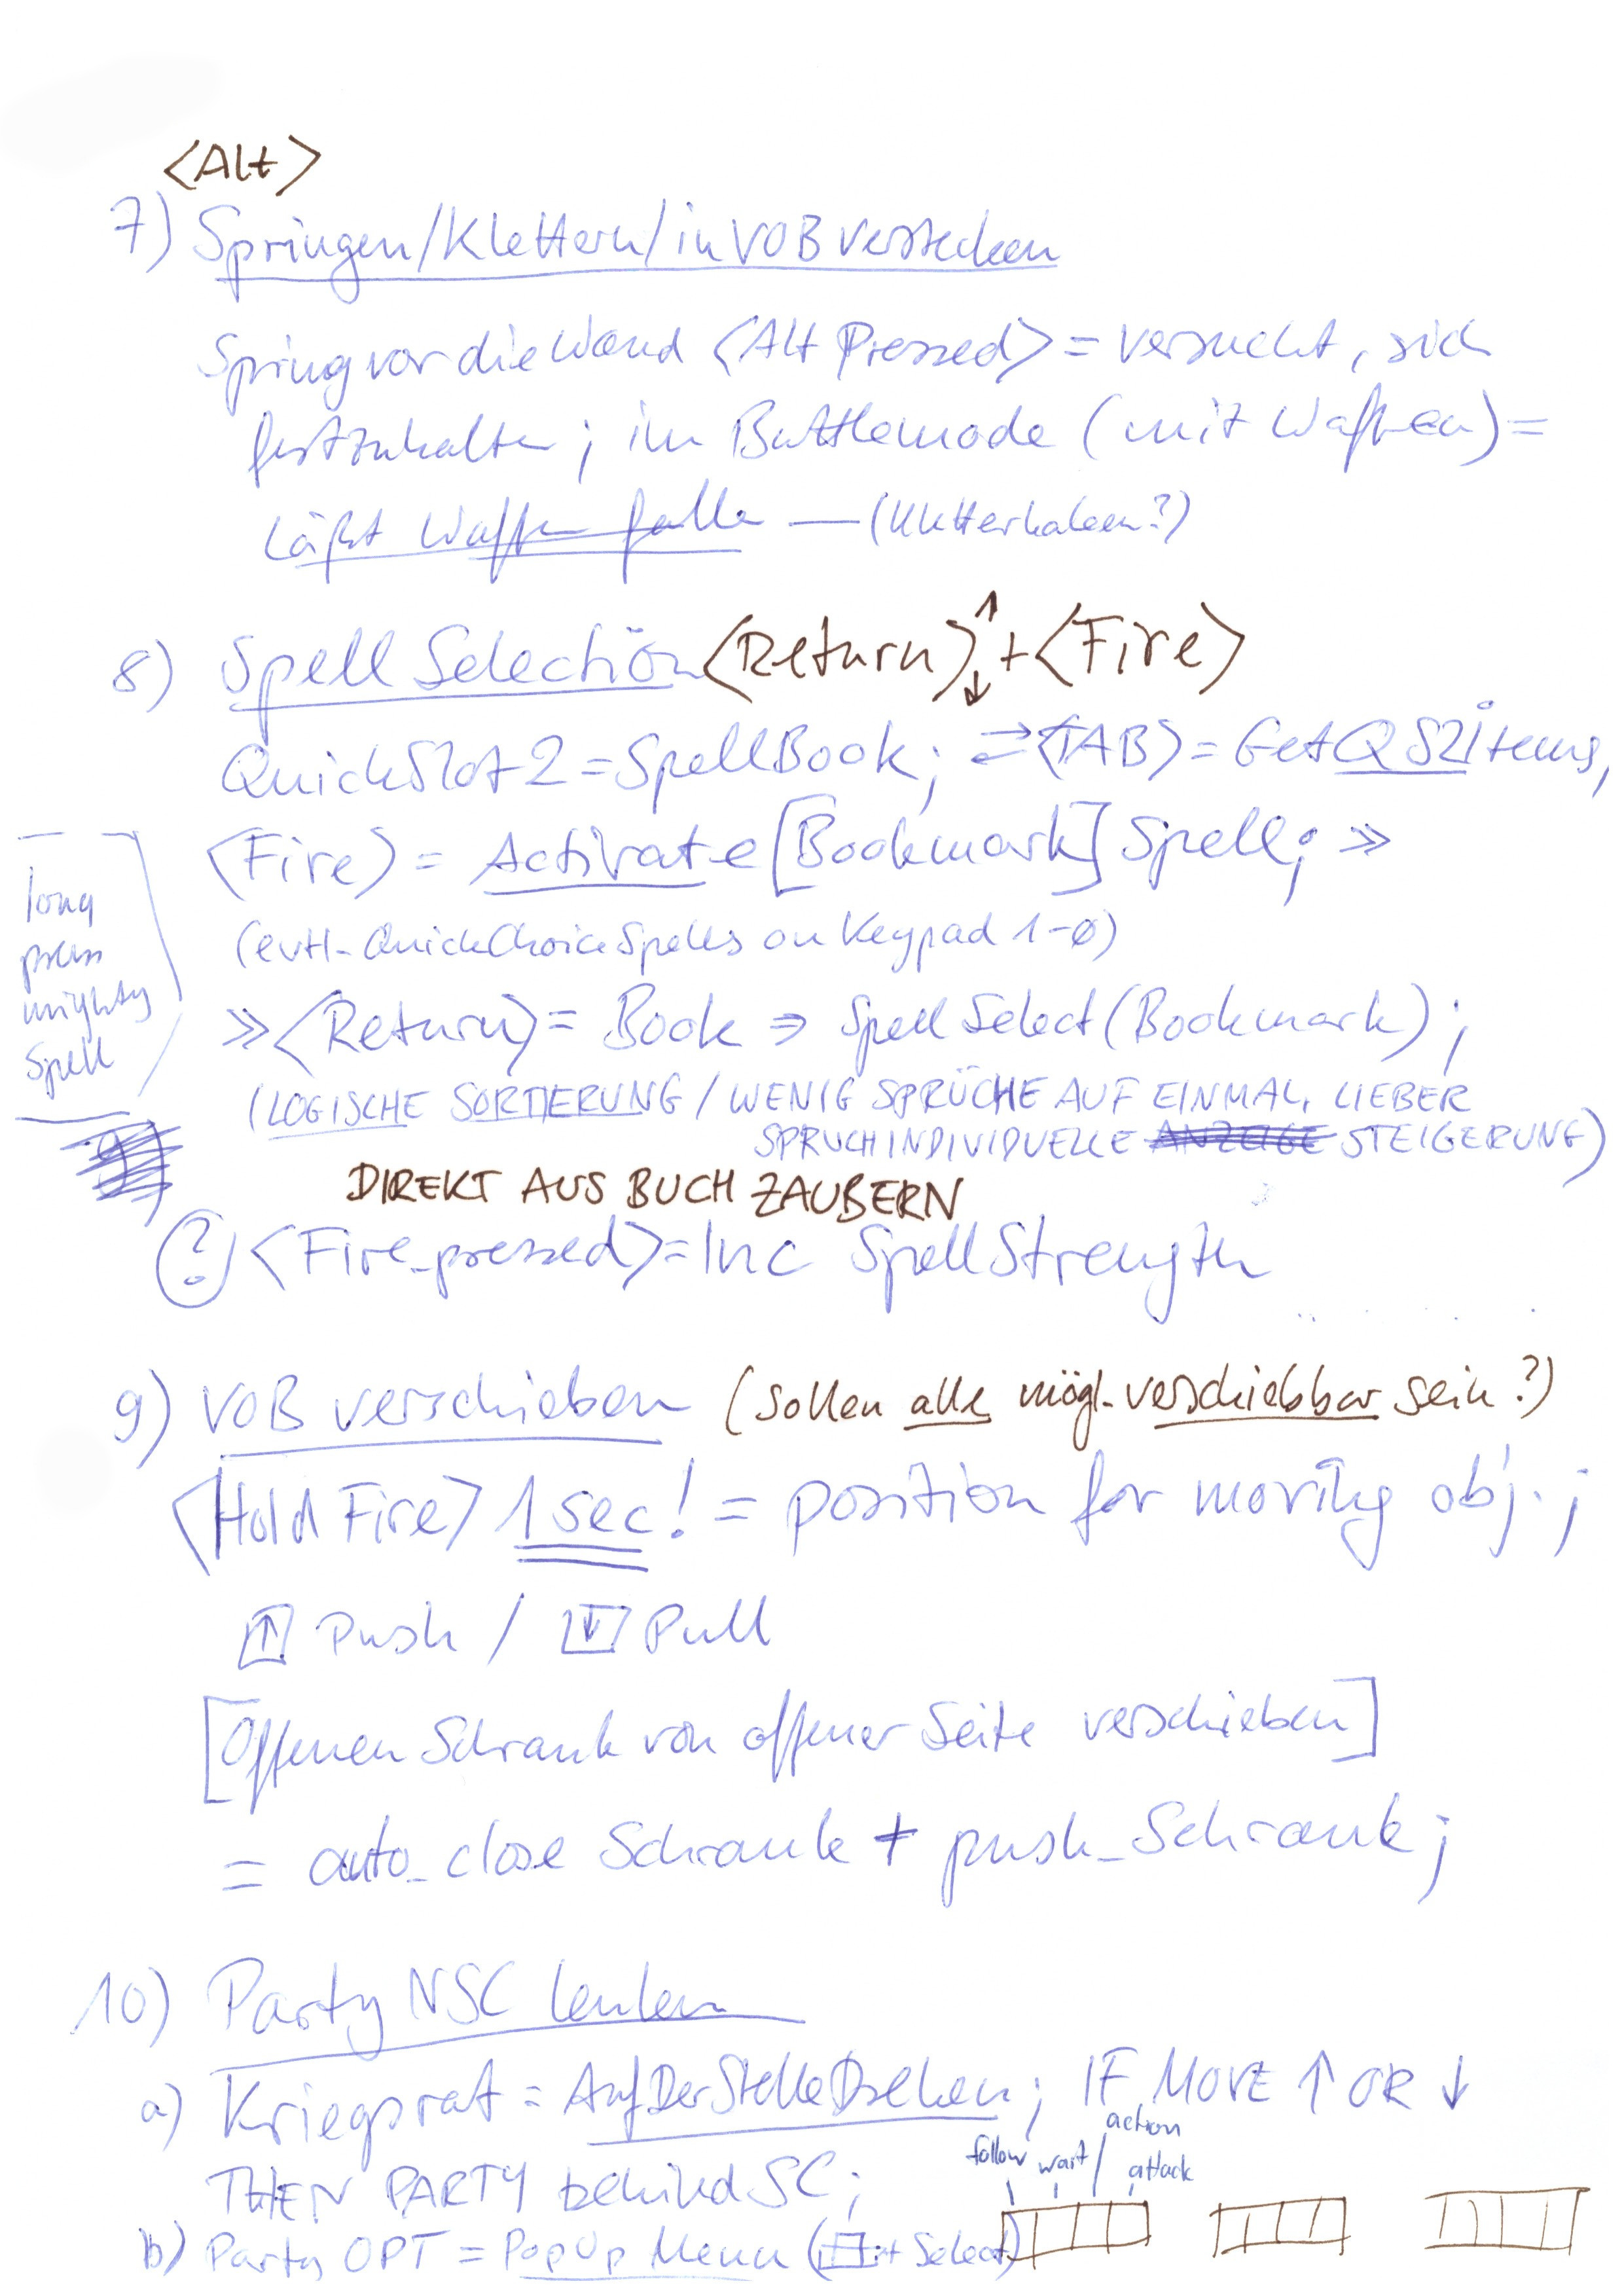 <Alt>
7) Springen/Klettern/in VOB verstecken
Spring vor die Wand <Alt Pressed> = versucht, sich
festzuhalten; im Battlemode (mit Waffen) =
Läßt Waffen fallen — (Kletterhaken?)
8) Spell Selection <Return>↑↓ + <Fire>
QuickSlot2 = SpellBook; ⇄ <TAB> = GetQS2Items,
<Fire> = Activate [Bookmark] Spell; >>
(evtl. QuickChoiceSpells on Keypad 1-0)
long
press
mighty
Spell
>> <Return> = Book ⇒ Spell Select (Bookmark);
(LOGISCHE SORTIERUNG / WENIG SPRÜCHE AUF EINMAL, LIEBER
SPRUCHINDIVIDUELLE ANZEIGE STEIGERUNG)
DIREKT AUS BUCH ZAUBERN
? <Fire_pressed> = Inc SpellStrength
9) VOB verschieben (sollen alle mögl. verschiebbar sein?)
<Hold Fire> 1 sec! = position for moving obj.;
↑ Push / ↓ Pull
[Offenen Schrank von offener Seite verschieben]
= auto_close Schrank + push_Schrank;
10) Party NSC lenken
a) Kriegsrat = AufDerStelleDrehen; IF MOVE ↑ OR ↓
THEN PARTY behind SC;
follow wait / action
attack
b) Party OPT = PopUp Menu ( + Select)